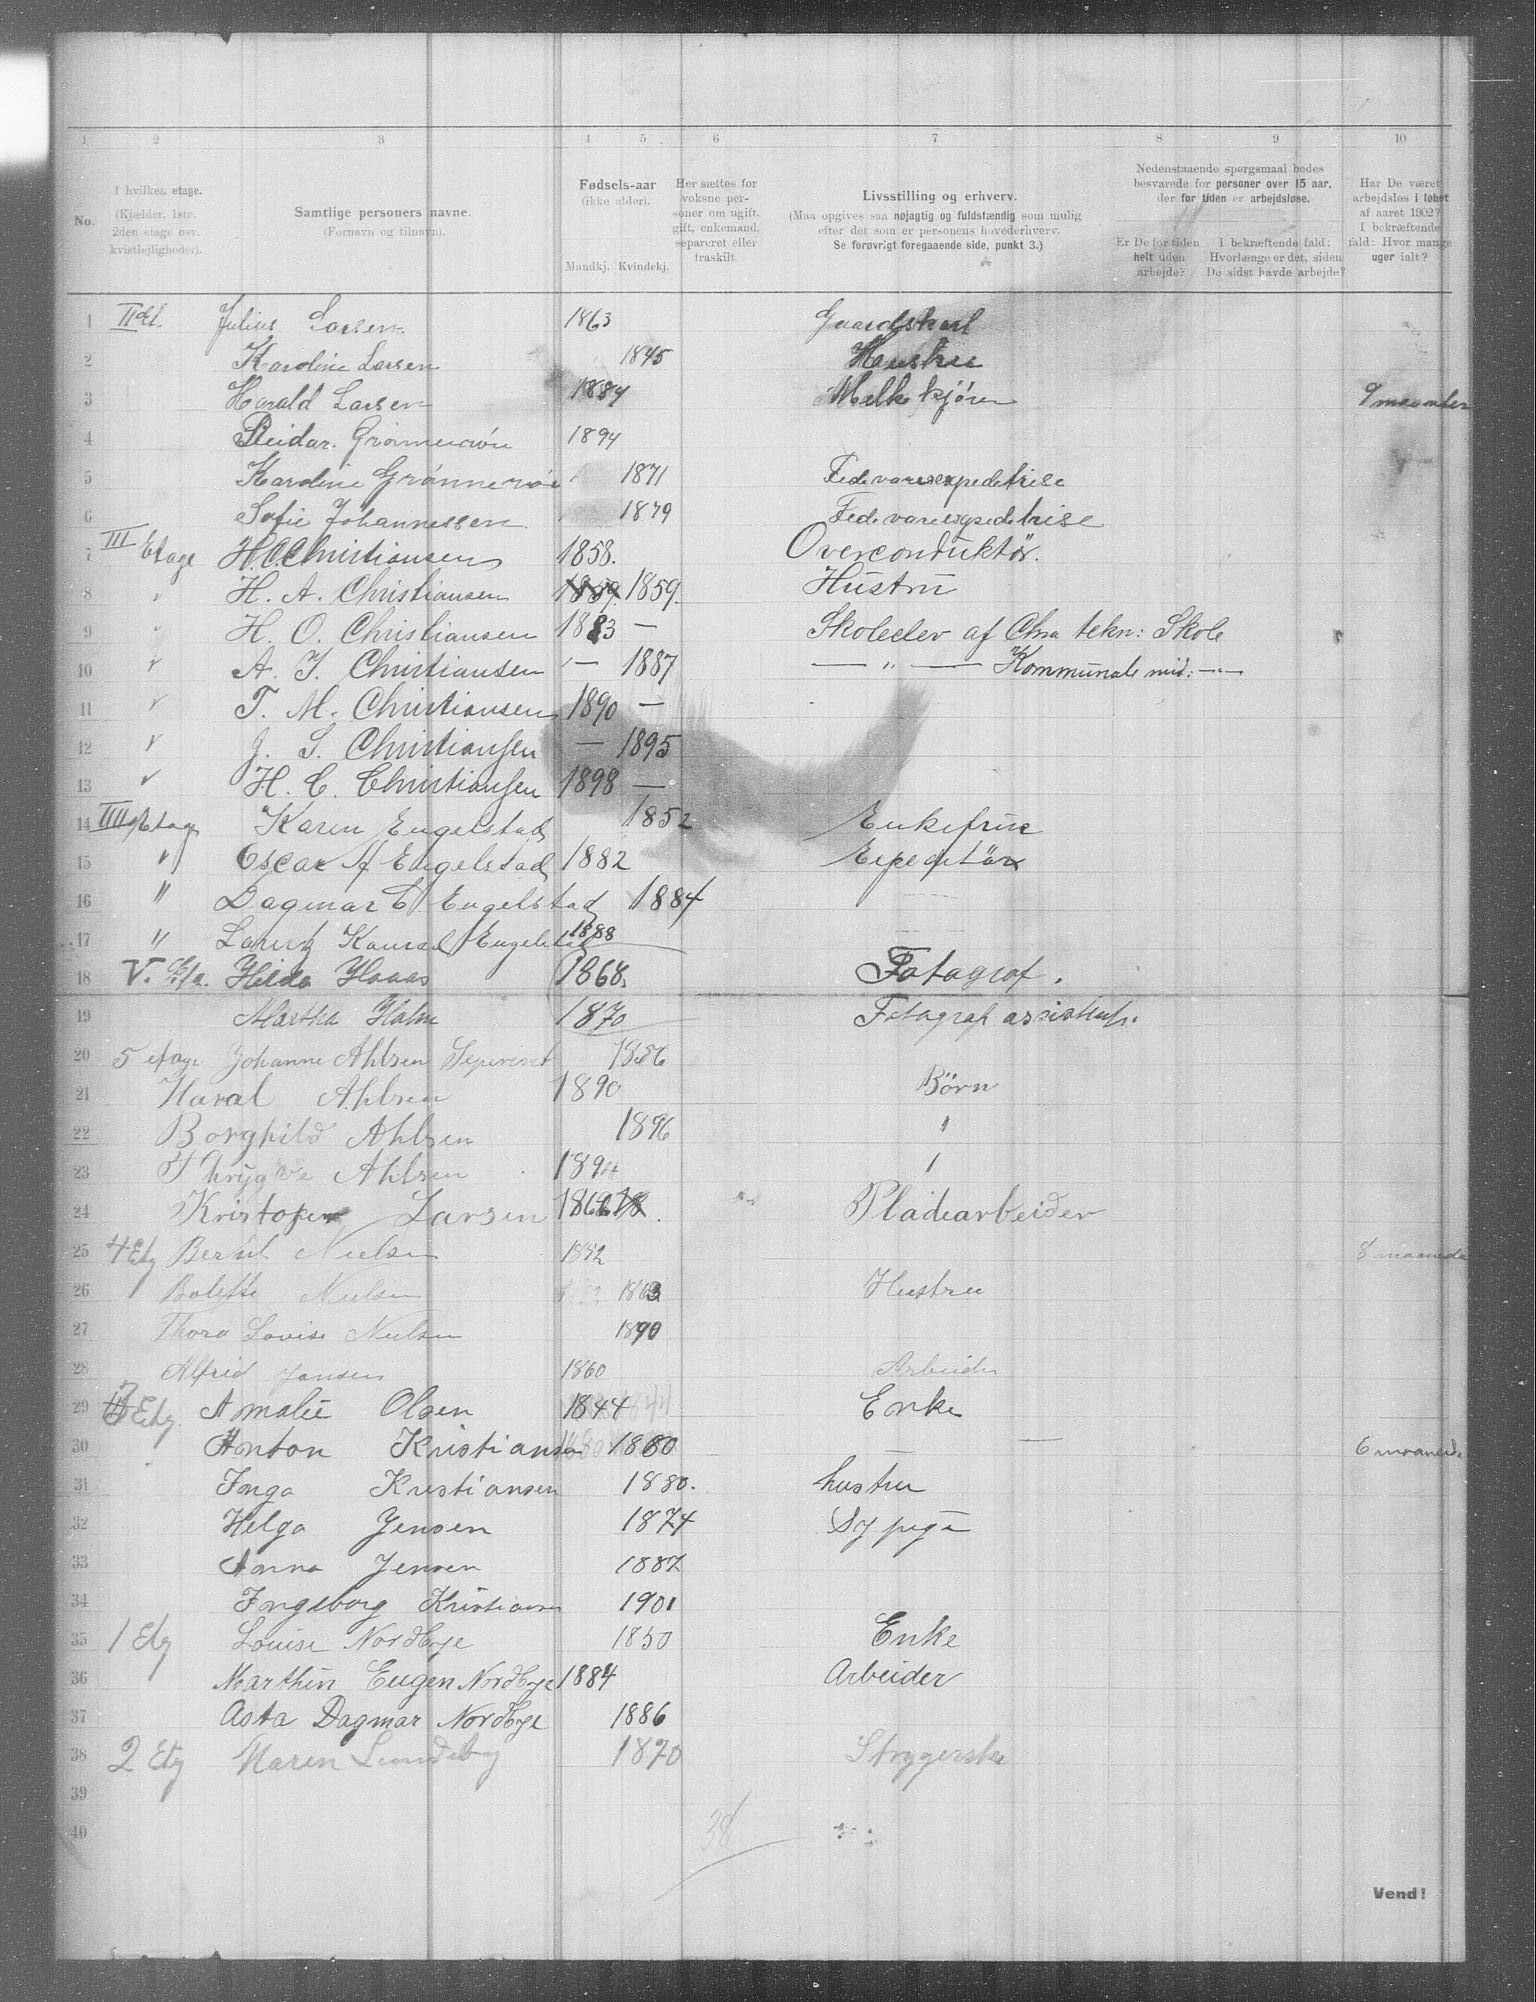 1 2 3 4 5 6 7 8 9 10
No.
I hvilken etage.
(Kjælder, 1ste.
2den etage osv.
kvistlejligheder).
Samtlige personers navne.
(Fornavn og tilnavn).
Fødsels-aar
(ikke alder).
Mandkj. Kvindekj.
Her sættes for
voksne per-
soner om ugift,
gift, enkemand,
separeret eller
fraskilt.
Livsstilling og erhverv.
(Maa opgives saa nøjagtig og fuldstændig som mulig
efter det som er personens hovederhverv.
Se forøvrigt foregaaende side, punkt 3.)
Nedenstaaende spørgsmaal bedes
besvarede for personer over 15 aar,
der for tiden er arbejdsløse.
Er De for tiden
helt uden
arbejde?
I bekræftende fald:
Hvorlænge er det, siden
De sidst havde arbejde?
Har De været
arbejdsløs i løbet
af aaret 1902?
I bekræftende
fald: Hvor mange
uger ialt?
1 II Et. Julius Larsen 1863 Gaardskarl
2 Karoline Larsen 1845 Hustru
3 Harald Larsen 1884 Melkekjører 9 maaneder
4 Reidar Grønnerøe 1894
5 Karoline Grønnerøe 1871 Fedevareexpedetrise
6 Sofie Johannessen 1879 Fedevareexpedetrise
7 III Etage H. C. Christiansen 1858. Overconduktör.
8 " H. A. Christiansen 1859. 1859. Hustru
9 " H. O. Christiansen 1883 — Skoleelev af Chra tekn: Skole
10 " A. J. Christiansen — 1887 — " — Kommunale mid: —
11 " T. M. Christiansen 1890 —
12 " J. S. Christiansen — 1895
13 " H. C. Christiansen 1898 —
14 IIII Etage Karen Engelstad 1852 Enkefrue
15 " Oscar Af Engelstad 1882 Expeditör
16 " Dagmar C. Engelstad 1884
17 " Lauritz Konrad Engelstad 1888
18 V. Hilda Haaas 1868. Fotograf.
19 Martha Holm 1870 Fotograf assistent.
20 5 etage Johanne Ahlsen Sepereret 1856
21 Haral Ahlsen 1890 Börn
22 Borghild Ahlsen 1896 "
23 Thrygve Ahlsen 1894 "
24 Kristofer Larsen 1868 Pladearbeider
25 4 Etg Bernt Nielsen 1852 8 maaneder
26 Bolette Nielsen 1863 Hustru
27 Thora Lovise Nielsen 1890
28 Alfred Jansen 1860 Arbeider
29 3 Etg. Amalie Olsen 1844 Enke
30 Anton Kristiansen 1880 — 6 maaneder
31 Inga Kristiansen 1880. hustru
32 Helga Jensen 1874 Sypige
33 Anna Jensen 1887
34 Ingeborg Kristiansen 1901
35 1 Etg Louise Nordbye 1850 Enke
36 Marthin Eugen Nordbye 1884 Arbeider
37 Asta Dagmar Nordbye 1886
38 2 Etg Maren Lundeby 1870 Strygerske
39
40
38
Vend!